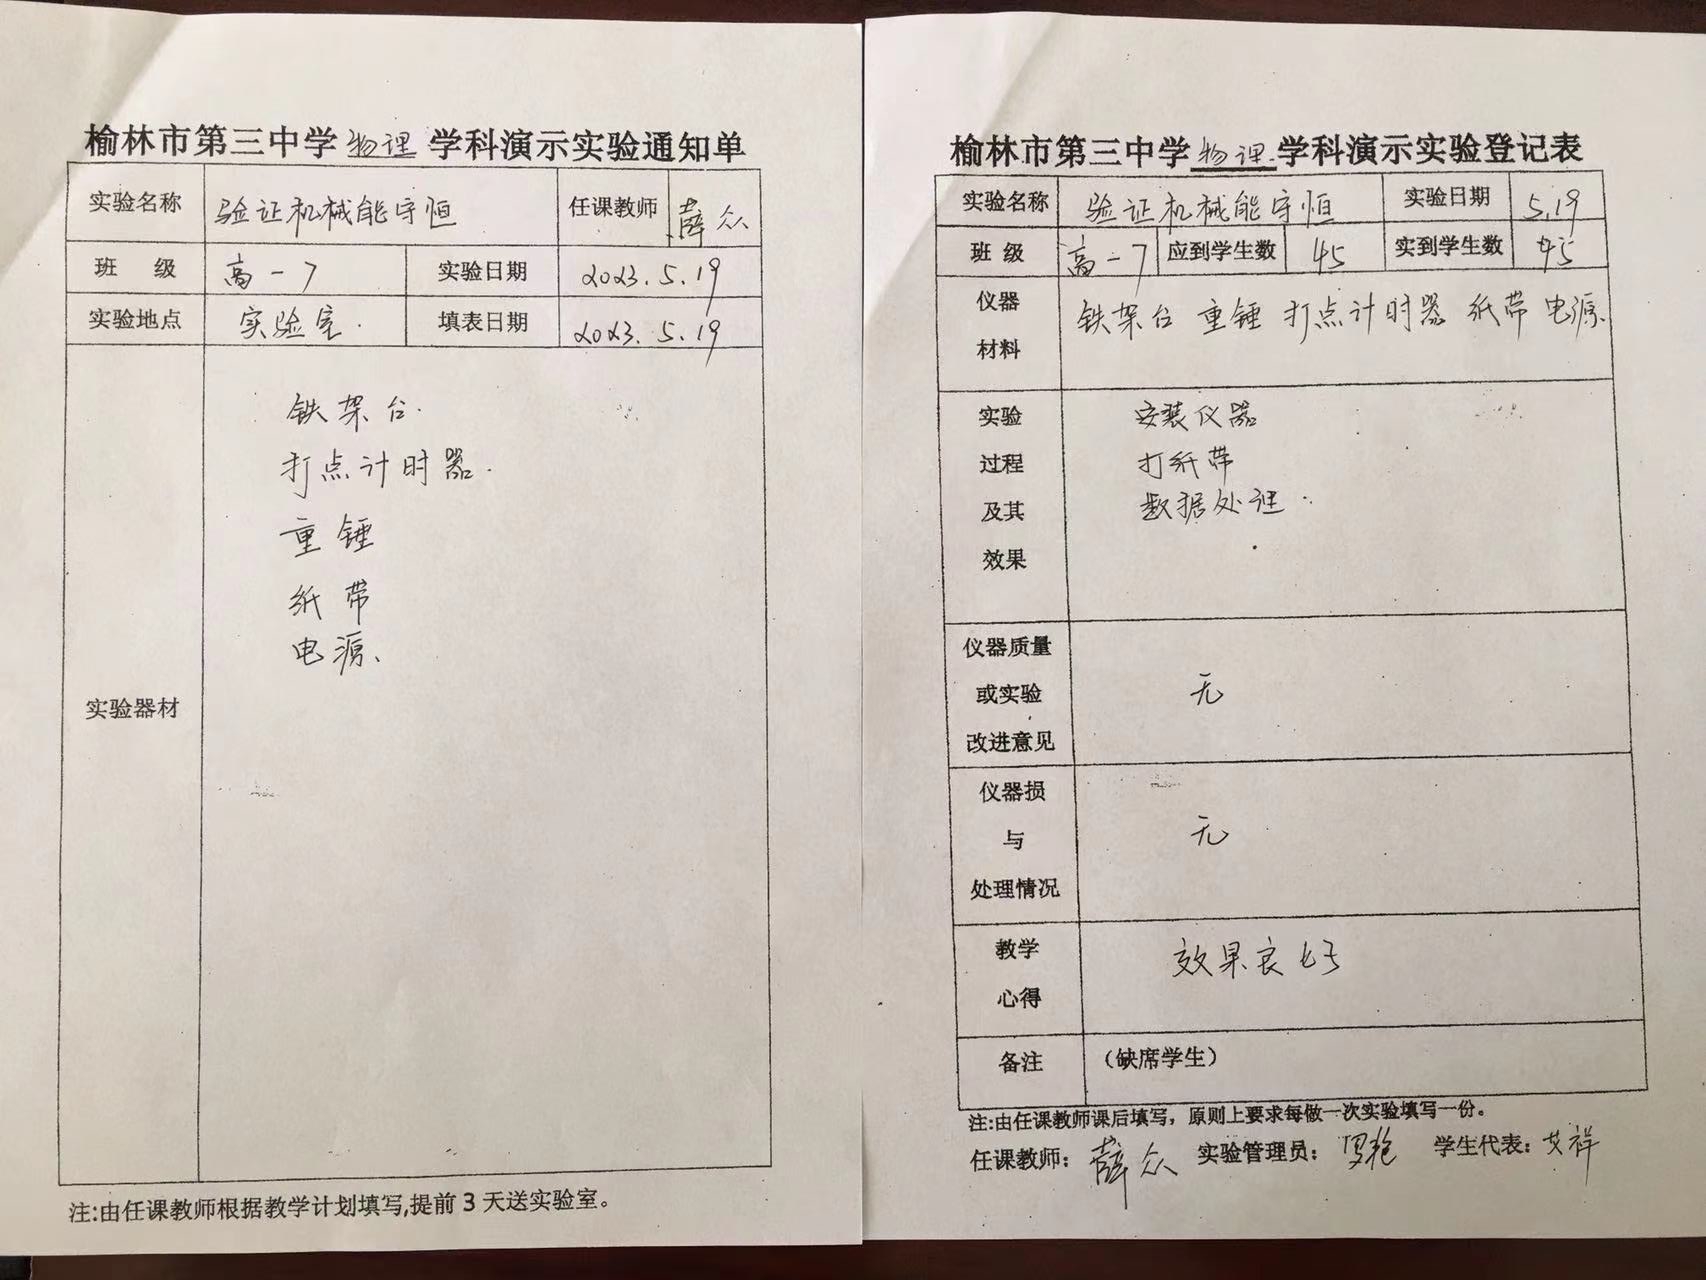 榆林市第三中学物理学科演示实验通知单
实验名称 验证机械能守恒 任课教师 薛众
班 级 高一7 实验日期 2023.5.19
实验地点 实验室. 填表日期 2023.5.19
实验器材
铁架台.
打点计时器.
重锤
纸带
电源、
注:由任课教师根据教学计划填写,提前3天送实验室。
榆林市第三中学物理学科演示实验登记表
实验名称 验证机械能守恒 实验日期 5.19
班 级 高一7 应到学生数 45 实到学生数 45
仪器
材料
铁架台 重锤 打点计时器 纸带 电源.
实验
过程
及其
效果
安装仪器
打纸带
数据处理.
仪器质量
或实验
改进意见
无
仪器损
与
处理情况
无
教学
心得
效果良好
备注 (缺席学生)
注:由任课教师课后填写，原则上要求每做一次实验填写一份。
任课教师: 薛众 实验管理员: 学生代表: 艾祥